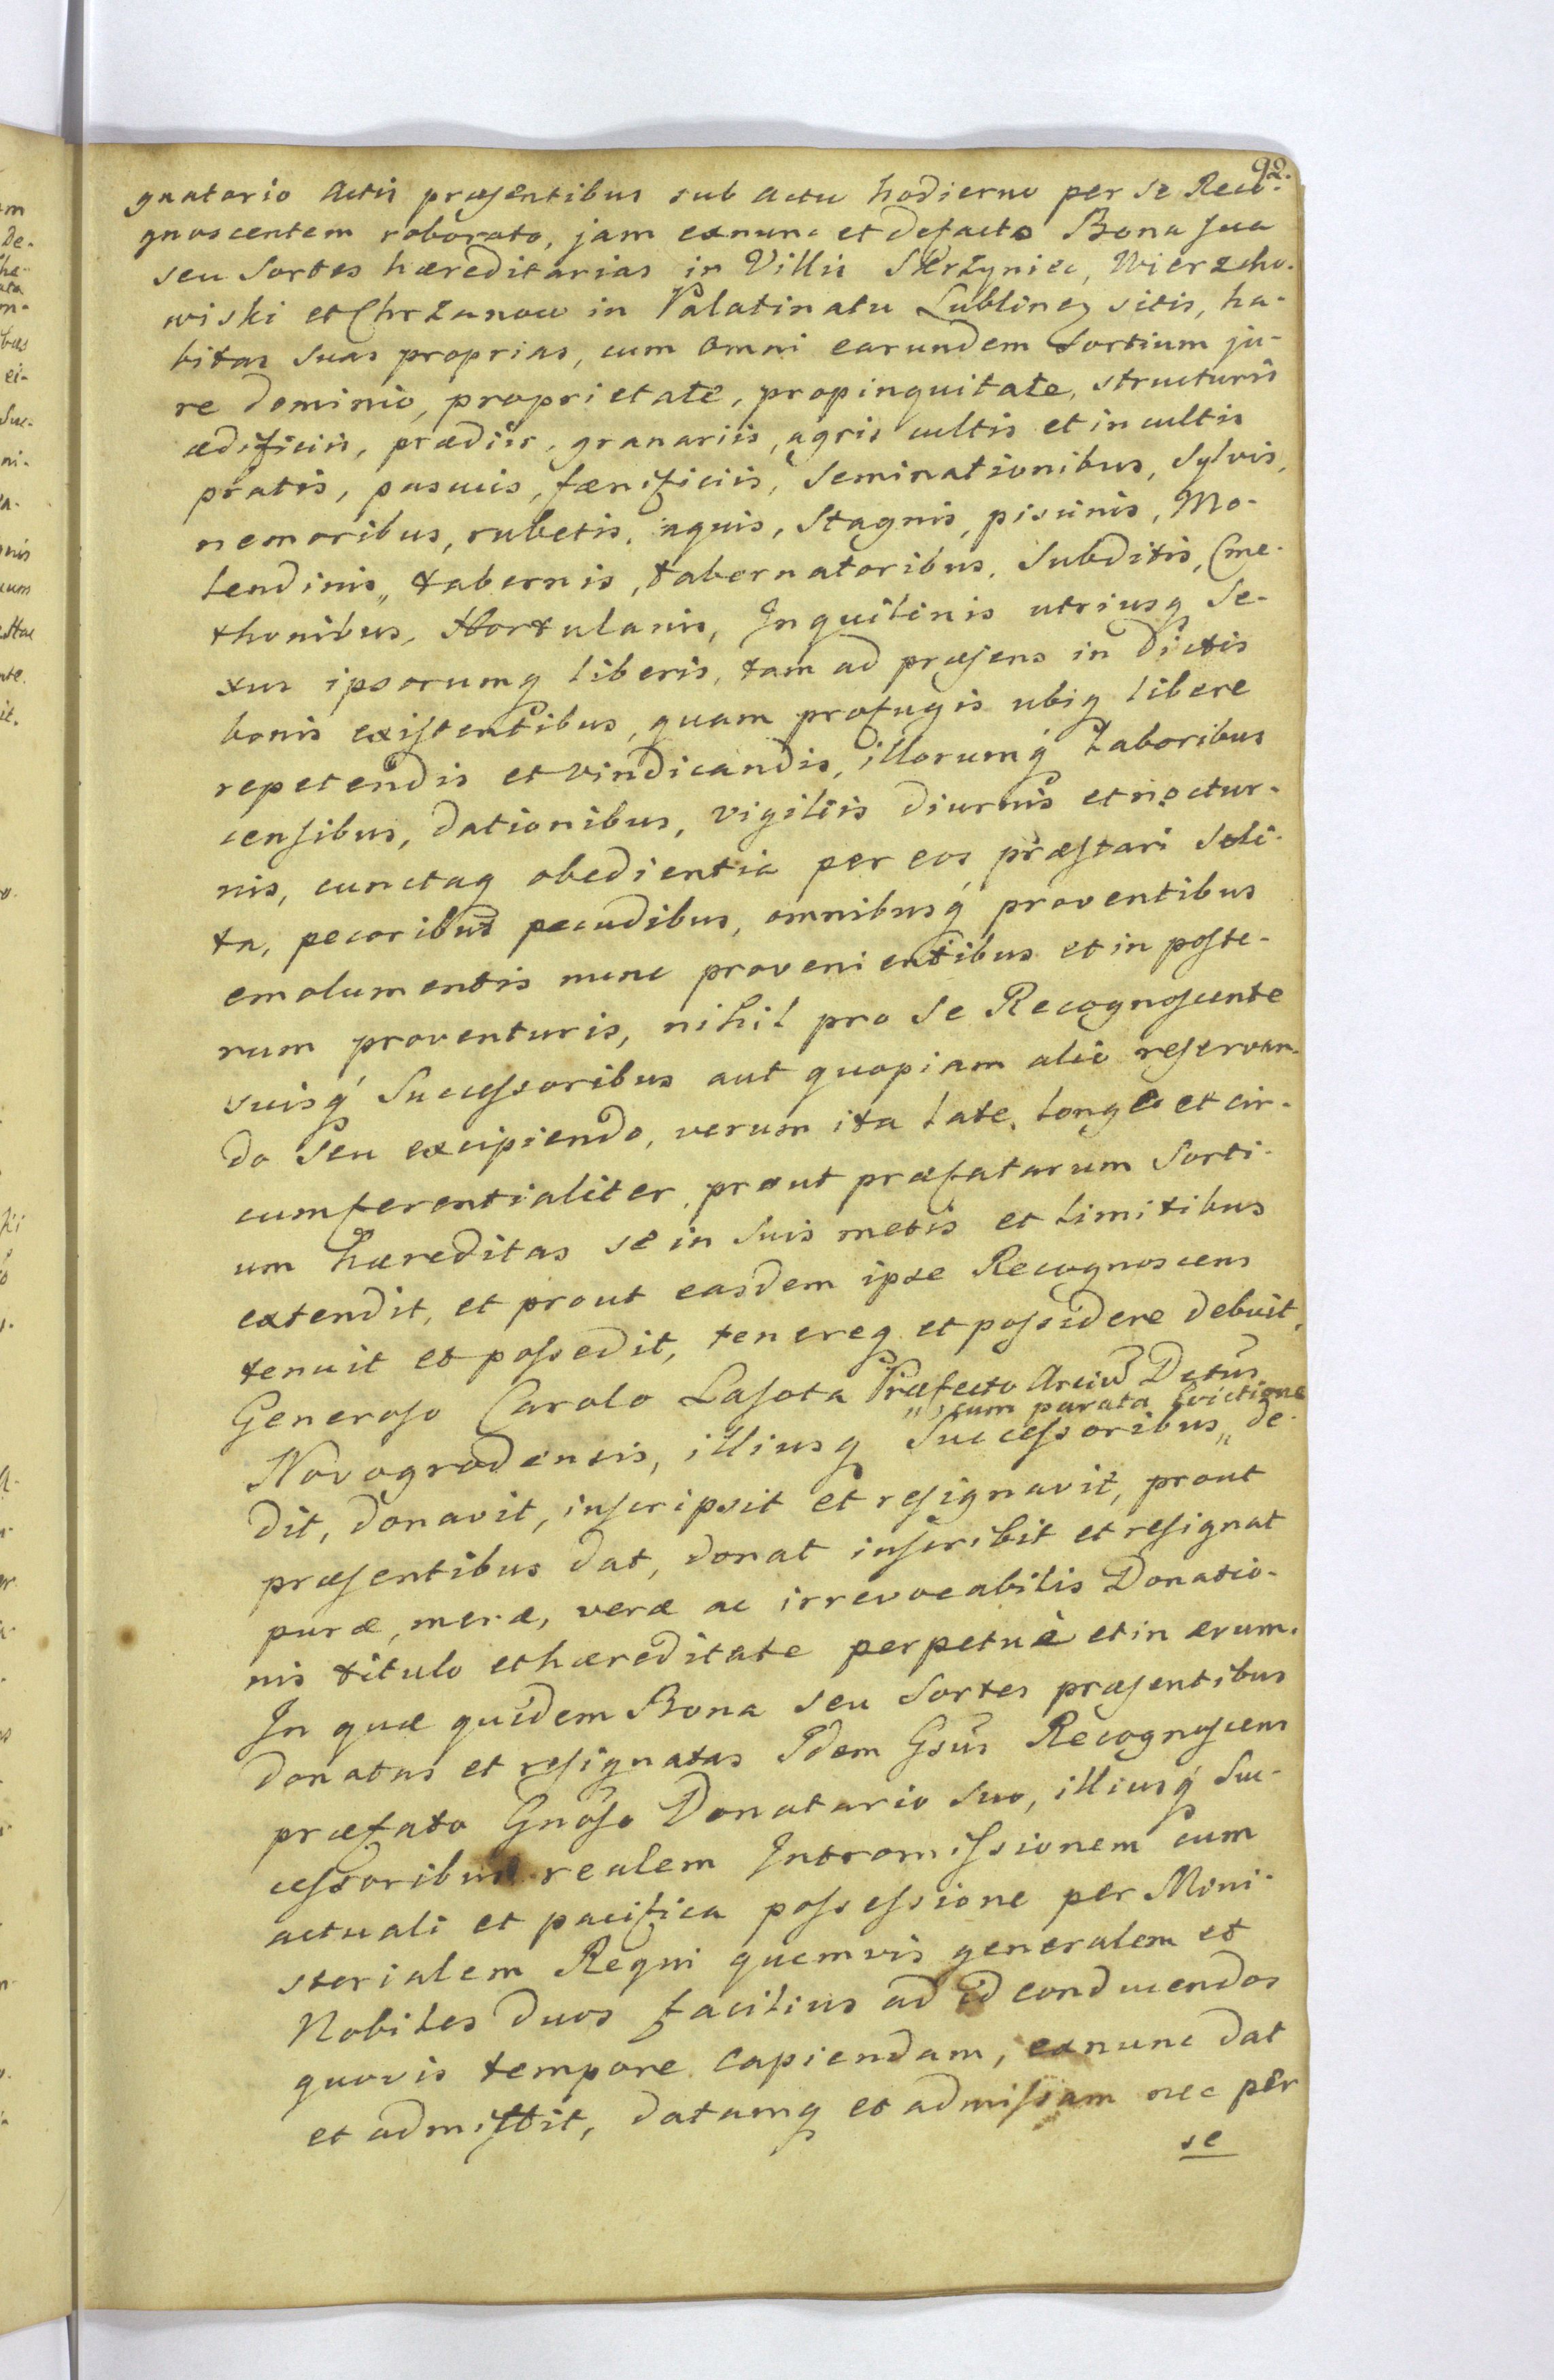 92.
gnatorio Actis præsentibus sub actu hodierno per se Reco-
gnoscentem roborato, jam exnunc et defacto Bona sua
seu Sortes hæreditarias in Villis Skrzyniec, Wierzcho-
wiski et Chrzanow in Palatinatu Lublinen sitis, ha-
bitas suas proprias, cum omni earundem Sortium ju-
re dominio, proprietate, propinquitate, structuris
ædificiis, prædiis, granariis, agris cultis et incultis
pratis, pascuis, fænificiis, Seminationibus, Sylvis,
nemoribus, rubetis, aquis, Stagnis, piscinis, Mo-
lendinis, tabernis, tabernatoribus, Subditis, Cme-
thonibus, Hortulanis, Inquilinis utriusq Se-
xus ipsorumq liberis, tam ad præsens in dictis
bonis existentibus, quam profugis ubiq libere
repetendis et vindicandis, illorumq Laboribus
censibus, dationibus, vigiliis diurnis et noctur-
nis, cunctaq obedientia per eos præstari Soli-
ta, pecoribus pecudibus, omnibusq proventibus
emolumentis nunc provenientibus et in poste-
rum proventuris, nihil pro Se Recognoscente
suisq Successoribus aut quopiam alio reservan-
do Seu excipiendo, verum ita late, longe et cir-
cumferentialiter, prout præfatarum Sorti-
um hæreditas se in Suis metis et limitibus
extendit, et prout easdem ipse Recognoscens
tenuit et possedit, tenereq et possidere debuit,
Generoso Carolo Lasota Præfecto Arciū Dctūs
„cum parata Evictione
Novogrodensis, illiusq Successoribus„ de-
dit, donavit, inscripsit et resignavit, prout
præsentibus dat, donat inscribit et resignat
puræ, meræ, veræ ac irrevocabilis Donatio-
nis titulo et hæreditate perpetuè et in ævum.
In quæ quidem Bona seu Sortes præsentibus
donatas et resignatas Idem Gsūs Recognoscens
præfato Gnōso Donatario Suo, illiusq Suc-
cessoribus realem Intromissionem cum
actuali et pacifica possessione per Mini-
sterialem Regni quemvis generalem et
Nobiles duos facilius ad id conducendos
quovis tempore capiendam, exnunc dat
et admittit, datamq et admissam nec per
se